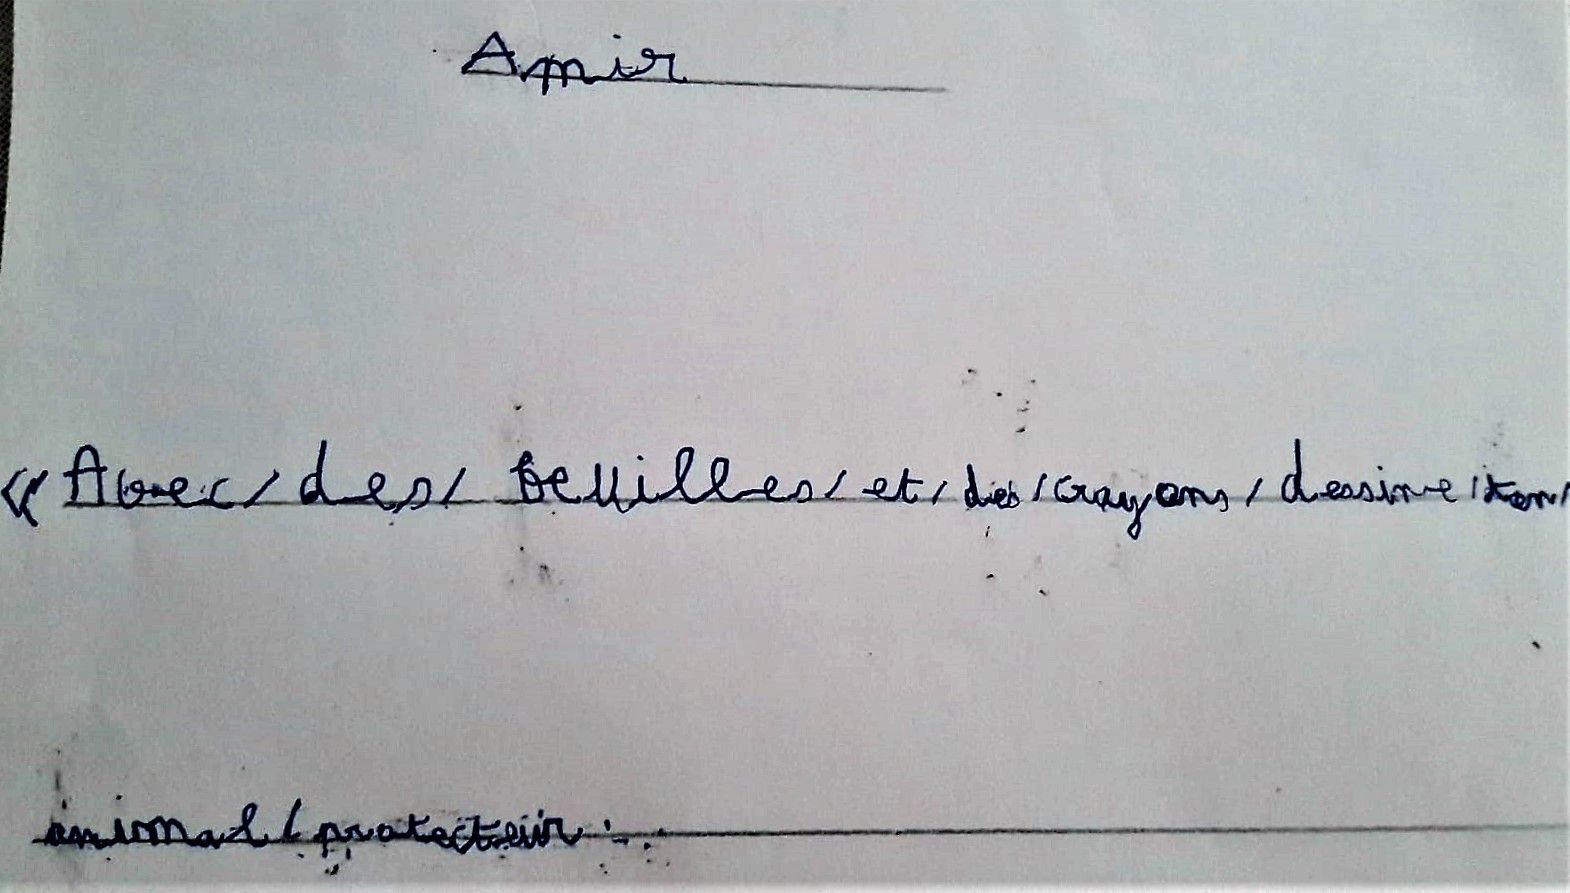 Amir
« Avec / des / feuilles / et / des / crayons / dessine / ton /
animal / protecteur :